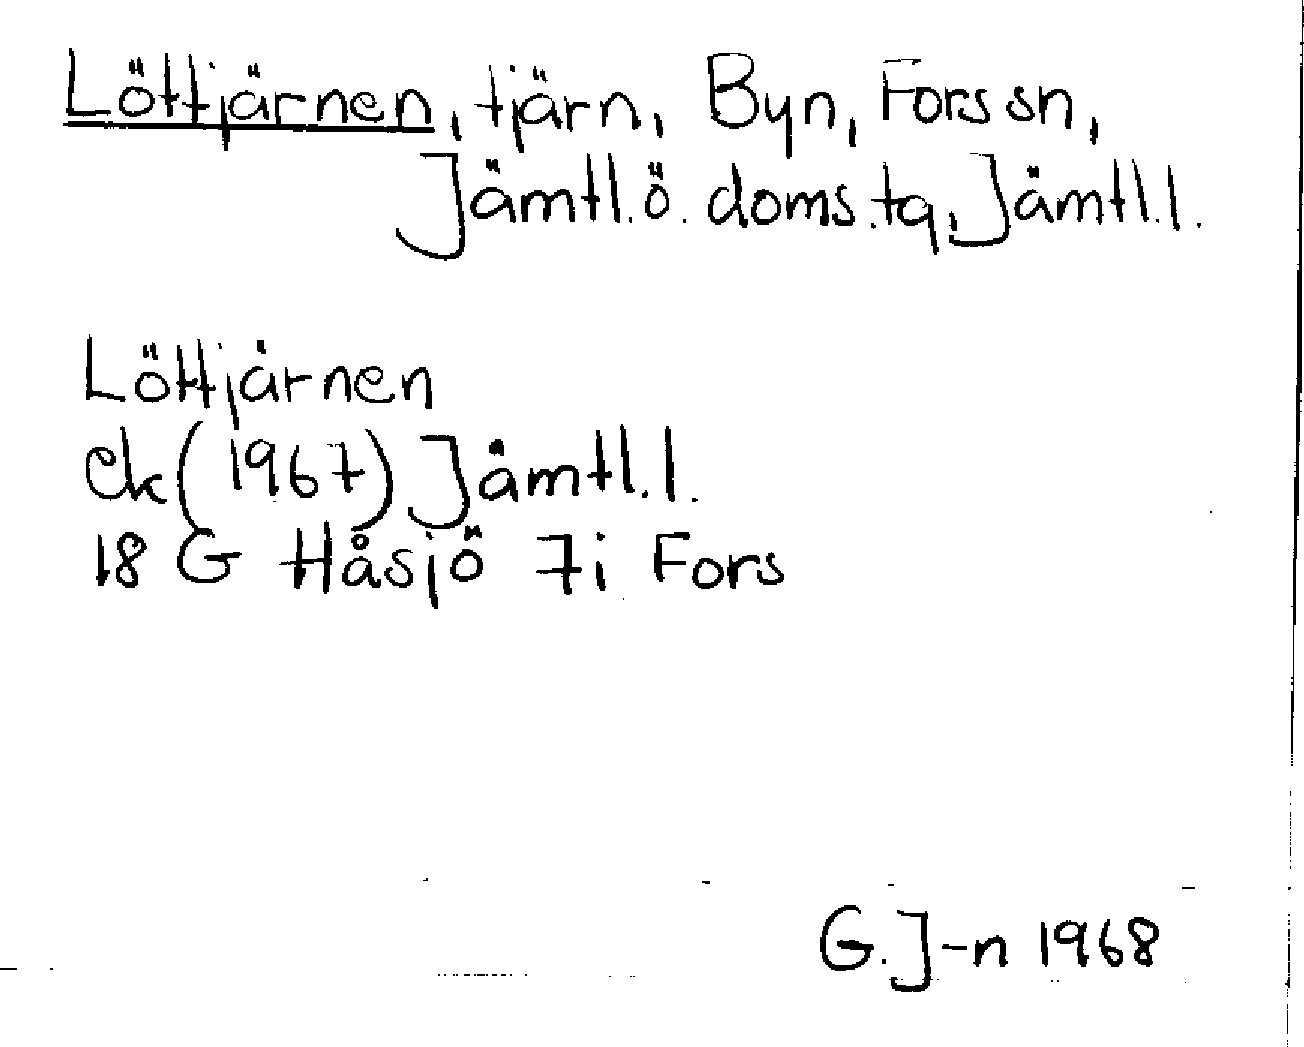 Löttjärnen, tjärn, Byn, Fors sn,
Jämtl.ö. doms.tq, Jämtl.l.
Löttjärnen
ek (1967) Jämtl.l.
18 G Håsjö 7i Fors
G. J-n 1968